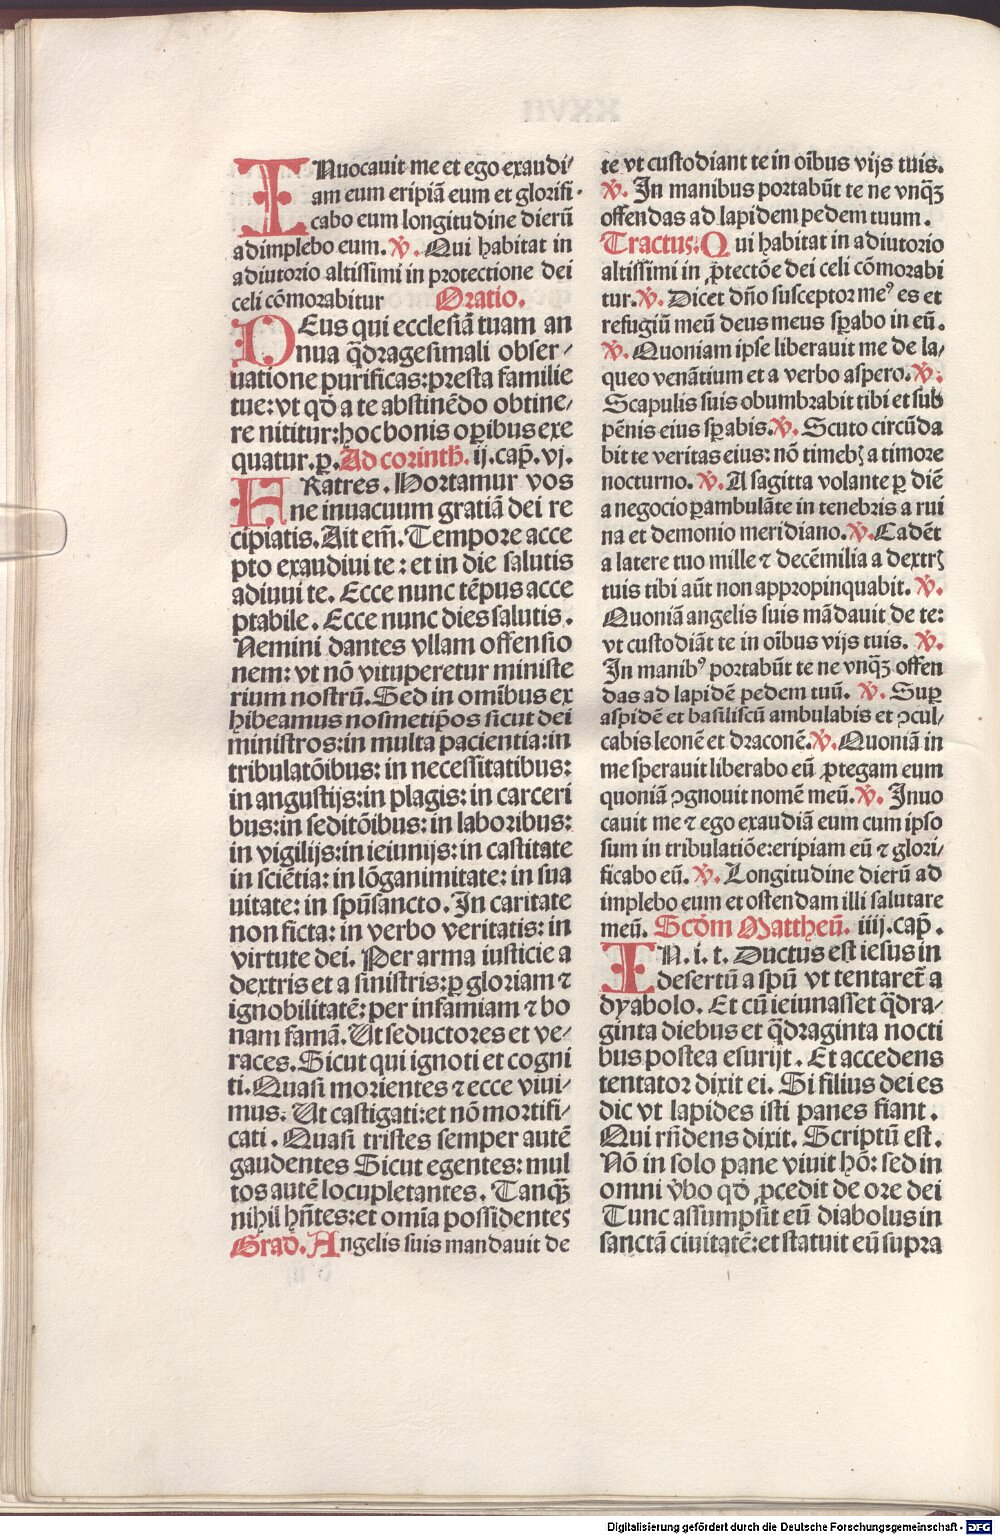 INuocauit me et ego exaudi⸗
am eum eripiā eum et glorifi ·
cabo eum longitudine dierū
adimplebo eum. ℣. Qui habitat in
adiutorio altissimi in protectione dei
celi cōmorabitur Oratio.
DEus qui ecclesiā tuam an
nua q̄dragesimali obser⸗
uatione purificas: presta familie
tue: vt qd̄ a te abstinēdo obtine⸗
re nititur: hoc bonis oꝑibus exe
quatur. ꝑ. Ad corinth. ij. cap̄. vj.
FRatres. Hortamur vos
ne inuacuum gratiā dei re
cipiatis. Ait em̄. Tempore acce
pto exaudiui te: et in die salutis
adiuui te. Ecce nunc tēpus acce
ptabile. Ecce nunc dies salutis.
Nemini dantes vllam offensio
nem: vt nō vituperetur ministe
rium nostrū. Sed in omībus ex
hibeamus nosmetip̄os sicut dei
ministros: in multa pacientia: in
tribulatōibus: in necessitatibus:
in angustijs: in plagis: in carceri
bus: in seditōibus: in laboribus:
in vigilijs: in ieiunijs: in castitate
in sciētia: in lōganimitate: in sua
uitate: in spūsancto. In caritate
non ficta: in verbo veritatis: in
virtute dei. Per arma iusticie a
dextris et a sinistris: ꝑ gloriam ⁊
ignobilitatē: per infamiam ⁊ bo
nam famā. Ut seductores et ve⸗
races. Sicut qui ignoti et cogni
ti. Quasi morientes ⁊ ecce viui⸗
mus. Ut castigati: et nō mortifi⸗
cati. Quasi tristes semper autē
gaudentes Sicut egentes: mul
tos autē locupletantes. Tanqꝫ
nihil hn̄tes: et omīa possidentes
Grad. Angelis suis mandauit de
te vt custodiant te in oībus vijs tuis.
℣. In manibus portabūt te ne vnqꝫ
offendas ad lapidem pedem tuum.
Tractus. Qui habitat in adiutorio
altissimi in ꝓtectōe dei celi cōmorabi
tur. ℣. Dicet dn̄o susceptor meꝰ es et
refugiū meū deus meus sꝑabo in eū.
℣. Quoniam ipse liberauit me de la⸗
queo venātium et a verbo aspero. ℣.
Scapulis suis obumbrabit tibi et sub
pēnis eius sꝑabis. ℣. Scuto circūda
bit te veritas eius: nō timebꝭ a timore
nocturno. ℣. A sagitta volante ꝑ diē
a negocio ꝑambulāte in tenebris a rui
na et demonio meridiano. ℣. Cadēt
a latere tuo mille ⁊ decēmilia a dextrꝭ
tuis tibi aūt non appropinquabit. ℣.
Quoniā angelis suis mādauit de te:
vt custodiāt te in oībus vijs tuis. ℣.
In manibꝰ portabūt te ne vnqꝫ offen
das ad lapidē pedem tuū. ℣. Suꝑ
aspidē et basiliscū ambulabis et ꝯcul⸗
cabis leonē et draconē. ℣. Quoniā in
me sperauit liberabo eū ꝓtegam eum
quoniā ꝯgnouit nomē meū. ℣. Inuo
cauit me ⁊ ego exaudiā eum cum ipso
sum in tribulatiōe: eripiam eū ⁊ glori⸗
ficabo eū. ℣. Longitudine dierū ad
implebo eum et ostendam illi salutare
meū. Scd̄m Mattheū. iiij. cap̄.
IN. i. t. Ductus est iesus in
desertū a spū vt tentaret̄ a
dyabolo. Et cū ieiunasset q̄dra⸗
ginta diebus et q̄draginta nocti
bus postea esurijt. Et accedens
tentator dixit ei. Si filius dei es
dic vt lapides isti panes fiant.
Qui rn̄dens dixit. Scriptū est.
Nō in solo pane viuit hō: sed in
omni v̄bo qd̄ ꝓcedit de ore dei
Tunc assumpsit eū diabolus in
sanctā ciuitatē: et statuit eū supra
Digitalisierung gefördert durch die Deutsche Forschungsgemeinschaft - DFG